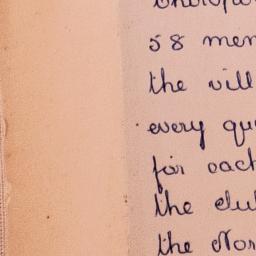 58 mem
the vill
every qu
for each
the clu
the Nor